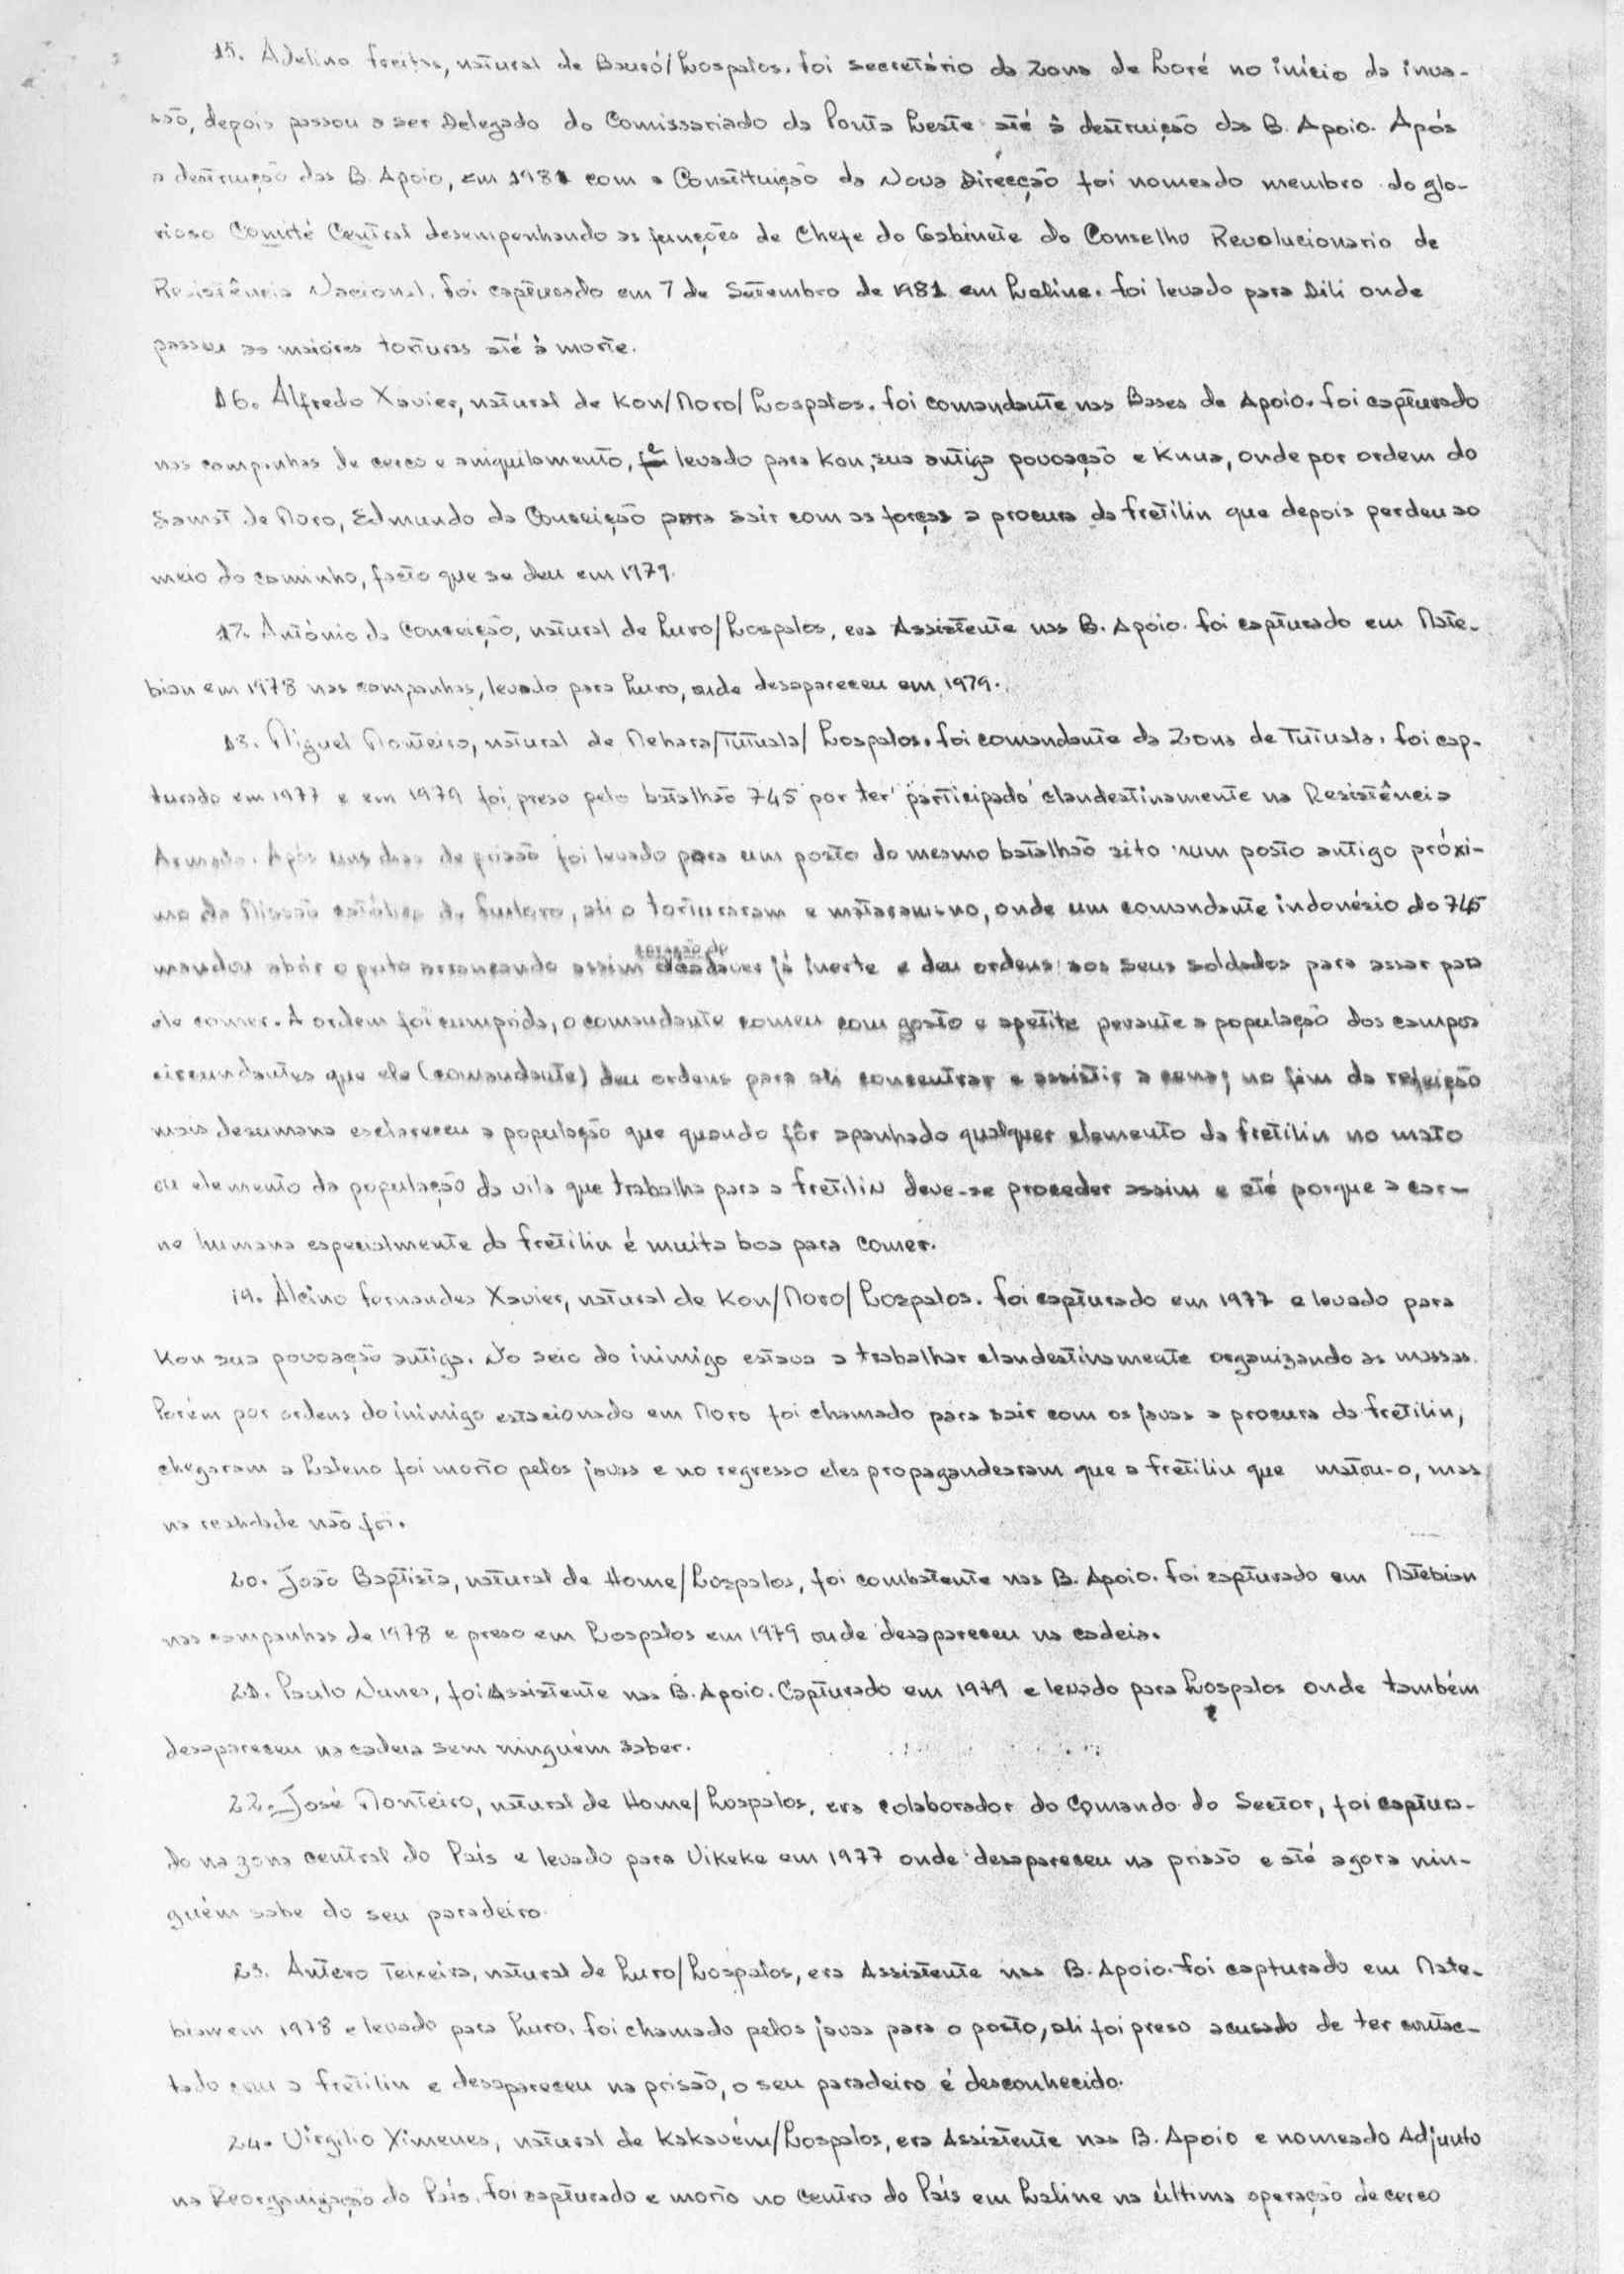 15. Adelino Freitas, natural de Bauró/Lospalos. Foi secretário da Zona de Loré no início da inva-
são, depois passou a ser Delegado do Comissariado da Ponta Leste até à destruição das B. Apoio. Após
a destruição das B. Apoio, em 1981 com a Constituição da Nova Direcção foi nomeado membro do glo-
rioso Comité Central desempenhando as funções de Chefe do Gabinete do Conselho Revolucionario de
Resistência Nacional. Foi capturado em 7 de Setembro de 1981 em Laline. Foi levado para Dili onde
passou as maiores torturas até à morte.
16. Alfredo Xavier, natural de Kon/Moro/Lospalos. Foi comandante nas Bases de Apoio. Foi capturado
nas campanhas de cerco e aniquilamento, levado para Kon, sua antiga povoação e Knua, onde por ordem do
Samat de Moro, Edmundo da Conceição para sair com as forças a procura da Fretilin que depois perdeu ao
meio do caminho, facto que se deu em 1979.
17. António da Conceição, natural de Luro/Lospalos, era Assistente nas B. Apoio. Foi capturado em Mate-
bian em 1978 nas campanhas, levado para Luro, onde desapareceu em 1979.
18. Miguel Monteiro, natural de Mehara/Tutuala/Lospalos. Foi comandante da Zona de Tutuala. Foi cap-
turado em 1977 e em 1979 foi preso pelo batalhão 745 por ter participado clandestinamente na Resistência
Armada. Após uns dias de prisão foi levado para um posto do mesmo batalhão sito num posto antigo próxi-
mo da Missão católica de Fuiloro, ali o torturaram e mataram-no, onde um comandante indonésio do 745
mandou abrir o peito arrancando assim coração do cadaver já inerte e deu ordens aos seus soldados para assar para
ele comer. A ordem foi cumprida, o comandante comeu com gosto e apetite perante a população dos campos
circundantes que ele (comandante) deu ordens para ali concentrar e assistir a cena; no fim da refeição
mais desumana esclareceu a população que quando fôr apanhado qualquer elemento da Fretilin no mato
ou elemento da população da vila que trabalha para a Fretilin deve-se proceder assim e até porque a car-
ne humana especialmente da Fretilin é muita boa para comer.
19. Alcino Fernandes Xavier, natural de Kon/Moro/Lospalos. Foi capturado em 1977 e levado para
Kon sua povoação antiga. No seio do inimigo estava a trabalhar clandestinamente organizando as massas.
Porém por ordens do inimigo estacionado em Moro foi chamado para sair com os javas a procura da Fretilin,
chegaram a Laleno foi morto pelos javas e no regresso eles propagandearam que a Fretilin que matou-o, mas
na realidade não foi.
20. João Baptista, natural de Home/Lospalos, foi combatente nas B. Apoio. Foi capturado em Matebian
nas campanhas de 1978 e preso em Lospalos em 1979 onde desapareceu na cadeia.
21. Paulo Nunes, foi Assistente nas B. Apoio. Capturado em 1979 e levado para Lospalos onde também
desapareceu na cadeia sem ninguém saber.
22. José Monteiro, natural de Home/Lospalos, era colaborador do Comando do Sector, foi captura-
do na zona central do País e levado para Vikeke em 1977 onde desapareceu na prisão e até agora nin-
guém sabe do seu paradeiro.
23. Antero Teixeira, natural de Luro/Lospalos, era Assistente nas B. Apoio. Foi capturado em Mate-
bian em 1978 e levado para Luro. Foi chamado pelos javas para o posto, ali foi preso acusado de ter contac-
tado com a Fretilin e desapareceu na prisão, o seu paradeiro é desconhecido.
24. Virgílio Ximenes, natural de Kakavém/Lospalos, era Assistente nas B. Apoio e nomeado Adjunto
na Reorganização do País. Foi capturado e morto no centro do País em Laline na última operação de cerco